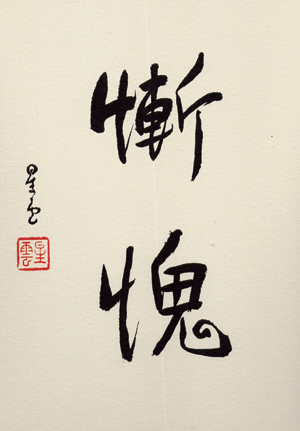 慚
愧
星雲
星雲